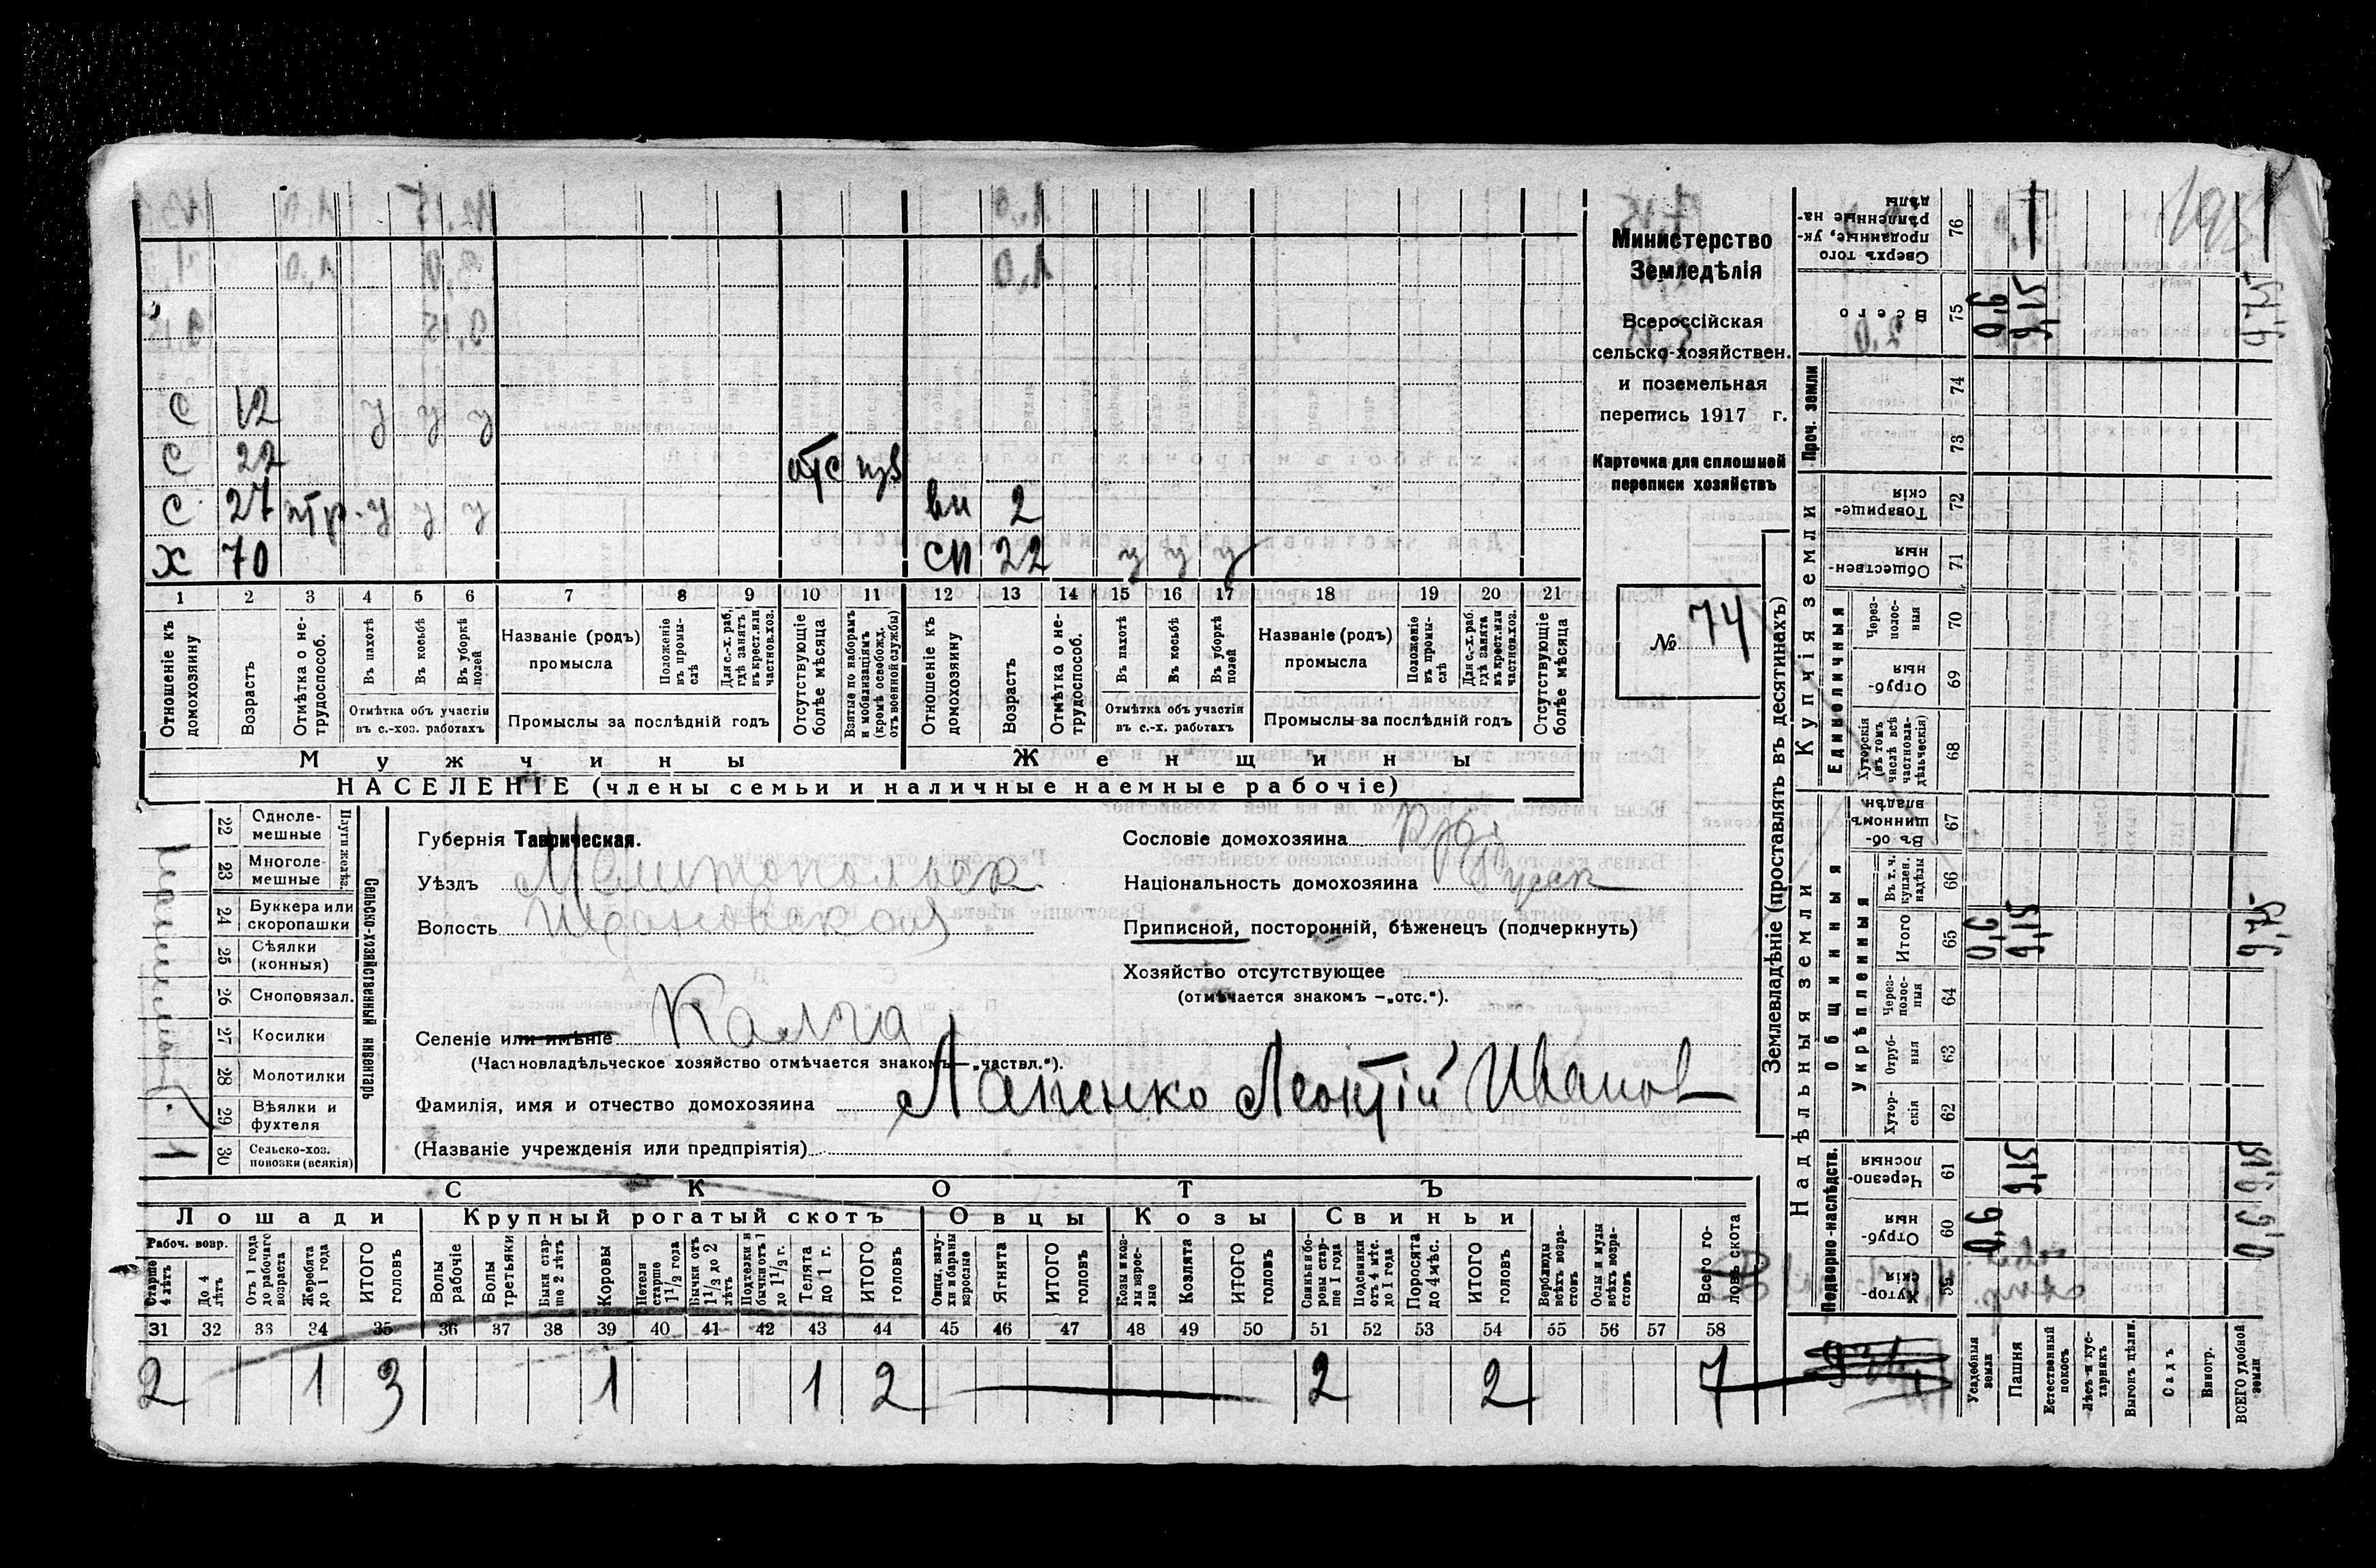 Министерство
Земледѣлія
Всероссійская
сельско-хозяйствен.
и поземельная
перепись 1917 г.
Карточка для сплошной
переписи хозяйствъ
№ 74
195
С 12 у у у
С 22 отс
С 27 у у у вн 2
Х 70 сн 22 у у у
1 2 3 4 5 6 7 8 9 10 11 12 13 14 15 16 17 18 19 20 21
Отношеніе къ домохозяину
Возрастъ
Отмѣтка о не-трудоспособ.
Въ пахотѣ
Въ косьбѣ
Въ уборкѣ полей
Отмѣтка объ участіи
въ с.-хоз. работахъ
Названіе (родъ)
промысла
Положеніе въ промы-слѣ
Для с.-х. раб., гдѣ занятъ въ крест. или частнов. хоз.
Промыслы за послѣдній годъ
Отсутствующіе болѣе мѣсяца
Взятые по наборамъ и мобилизаціямъ (кромѣ освобожд. отъ военной службы)
Отношеніе къ домохозяину
Возрастъ
Отмѣтка о не-трудоспособ.
Въ пахотѣ
Въ косьбѣ
Въ уборкѣ полей
Отмѣтка объ участіи
въ с.-х. работахъ
Названіе (родъ)
промысла
Положеніе въ промы-слѣ
Для с.-х. раб. гдѣ занята въ крест. или частнов. хоз.
Промыслы за послѣдній годъ
Отсутствующіе болѣе мѣсяца
Мужчины Женщины
НАСЕЛЕНІЕ (члены семьи и наличные наемные рабочіе)
Сельско-хозяйственный инвентарь
Плуги желѣз.
22 Однолемешные
23 Многолемешные
24 Буккера или скоропашки
25 Сѣялки (конныя)
26 Сноповязал.
27 Косилки
28 Молотилки
29 Вѣялки и фухтеля
30 Сельско-хоз. повозки (всякія) 1
Губернія Таврическая.
Уѣздъ Мелитопольск
Волость Ивановская
Селеніе или имѣніе Калга
(Частновладѣльческое хозяйство отмѣчается знакомъ—„частвл.“).
Фамилія, имя и отчество домохозяина Лапенко Леонтій Иванов
(Названіе учрежденія или предпріятія)
Сословіе домохозяина кр
Національность домохозяина Русск
Приписной, посторонній, бѣженецъ (подчеркнуть)
Хозяйство отсутствующее
(отмѣчается знакомъ —„отс.“).
СКОТЪ
Лошади Крупный рогатый скотъ Овцы Козы Свиньи
Рабоч. возр.
Старше 4 лѣтъ
До 4 лѣтъ
Отъ 1 года до рабочаго возраста
Жеребята до 1 года
ИТОГО головъ
Волы рабочіе
Волы третьяки
Быки старше 2 лѣтъ
Коровы
Нетели старше 1 1/2 года
Бычки отъ 1 1/2 до 2 лѣтъ
Подтелки и бычки отъ 1 до 1 1/2 г.
Телята до 1 г.
ИТОГО головъ
Овцы, валухи и бараны взрослые
Ягнята
ИТОГО головъ
Козы и козлы взрослые
Козлята
ИТОГО головъ
Свиньи и боровы старше 1 года
Подсвинки отъ 4 мѣс. до 1 года
Поросята до 4 мѣс.
ИТОГО головъ
Верблюды всѣхъ возрастовъ
Ослы и мулы всѣхъ возрастовъ
Всего головъ скота
31 32 33 34 35 36 37 38 39 40 41 42 43 44 45 46 47 48 49 50 51 52 53 54 55 56 57 58
2 1 3 1 1 2 2 2 7
Землевладѣніе (проставлять въ десятинахъ)
Надѣльныя земли
Купчія земли
Проч. земли
Подворно-наслѣдств.
Общинныя
Укрѣпленныя
Единоличныя
Хуторскія 59
Отрубныя 60 0,6 0,6
Черезполосныя 61 9,15 9,15
Хуторскія 62
Отрубныя 63
Черезполосныя 64
Итого 65 0,6 9,15 9,75
Въ т. ч. куплен. надѣлы 66
Въ общинномъ владѣн. 67
Хуторскія (въ томъ числѣ всѣ частновладѣльческія) 68
Отрубныя 69
Черезполосныя 70
Общественныя 71
Товарищескія 72
73
74
Всего 75 0,6 9,15 9,75
Сверхъ того проданные, укрѣпленные надѣлы 76
Усадебныя земли
Пашня
Естественный покосъ
Лѣсъ и кустарникъ
Выгонъ цѣлин.
Садъ
Виногр.
ВСЕГО удобной земли